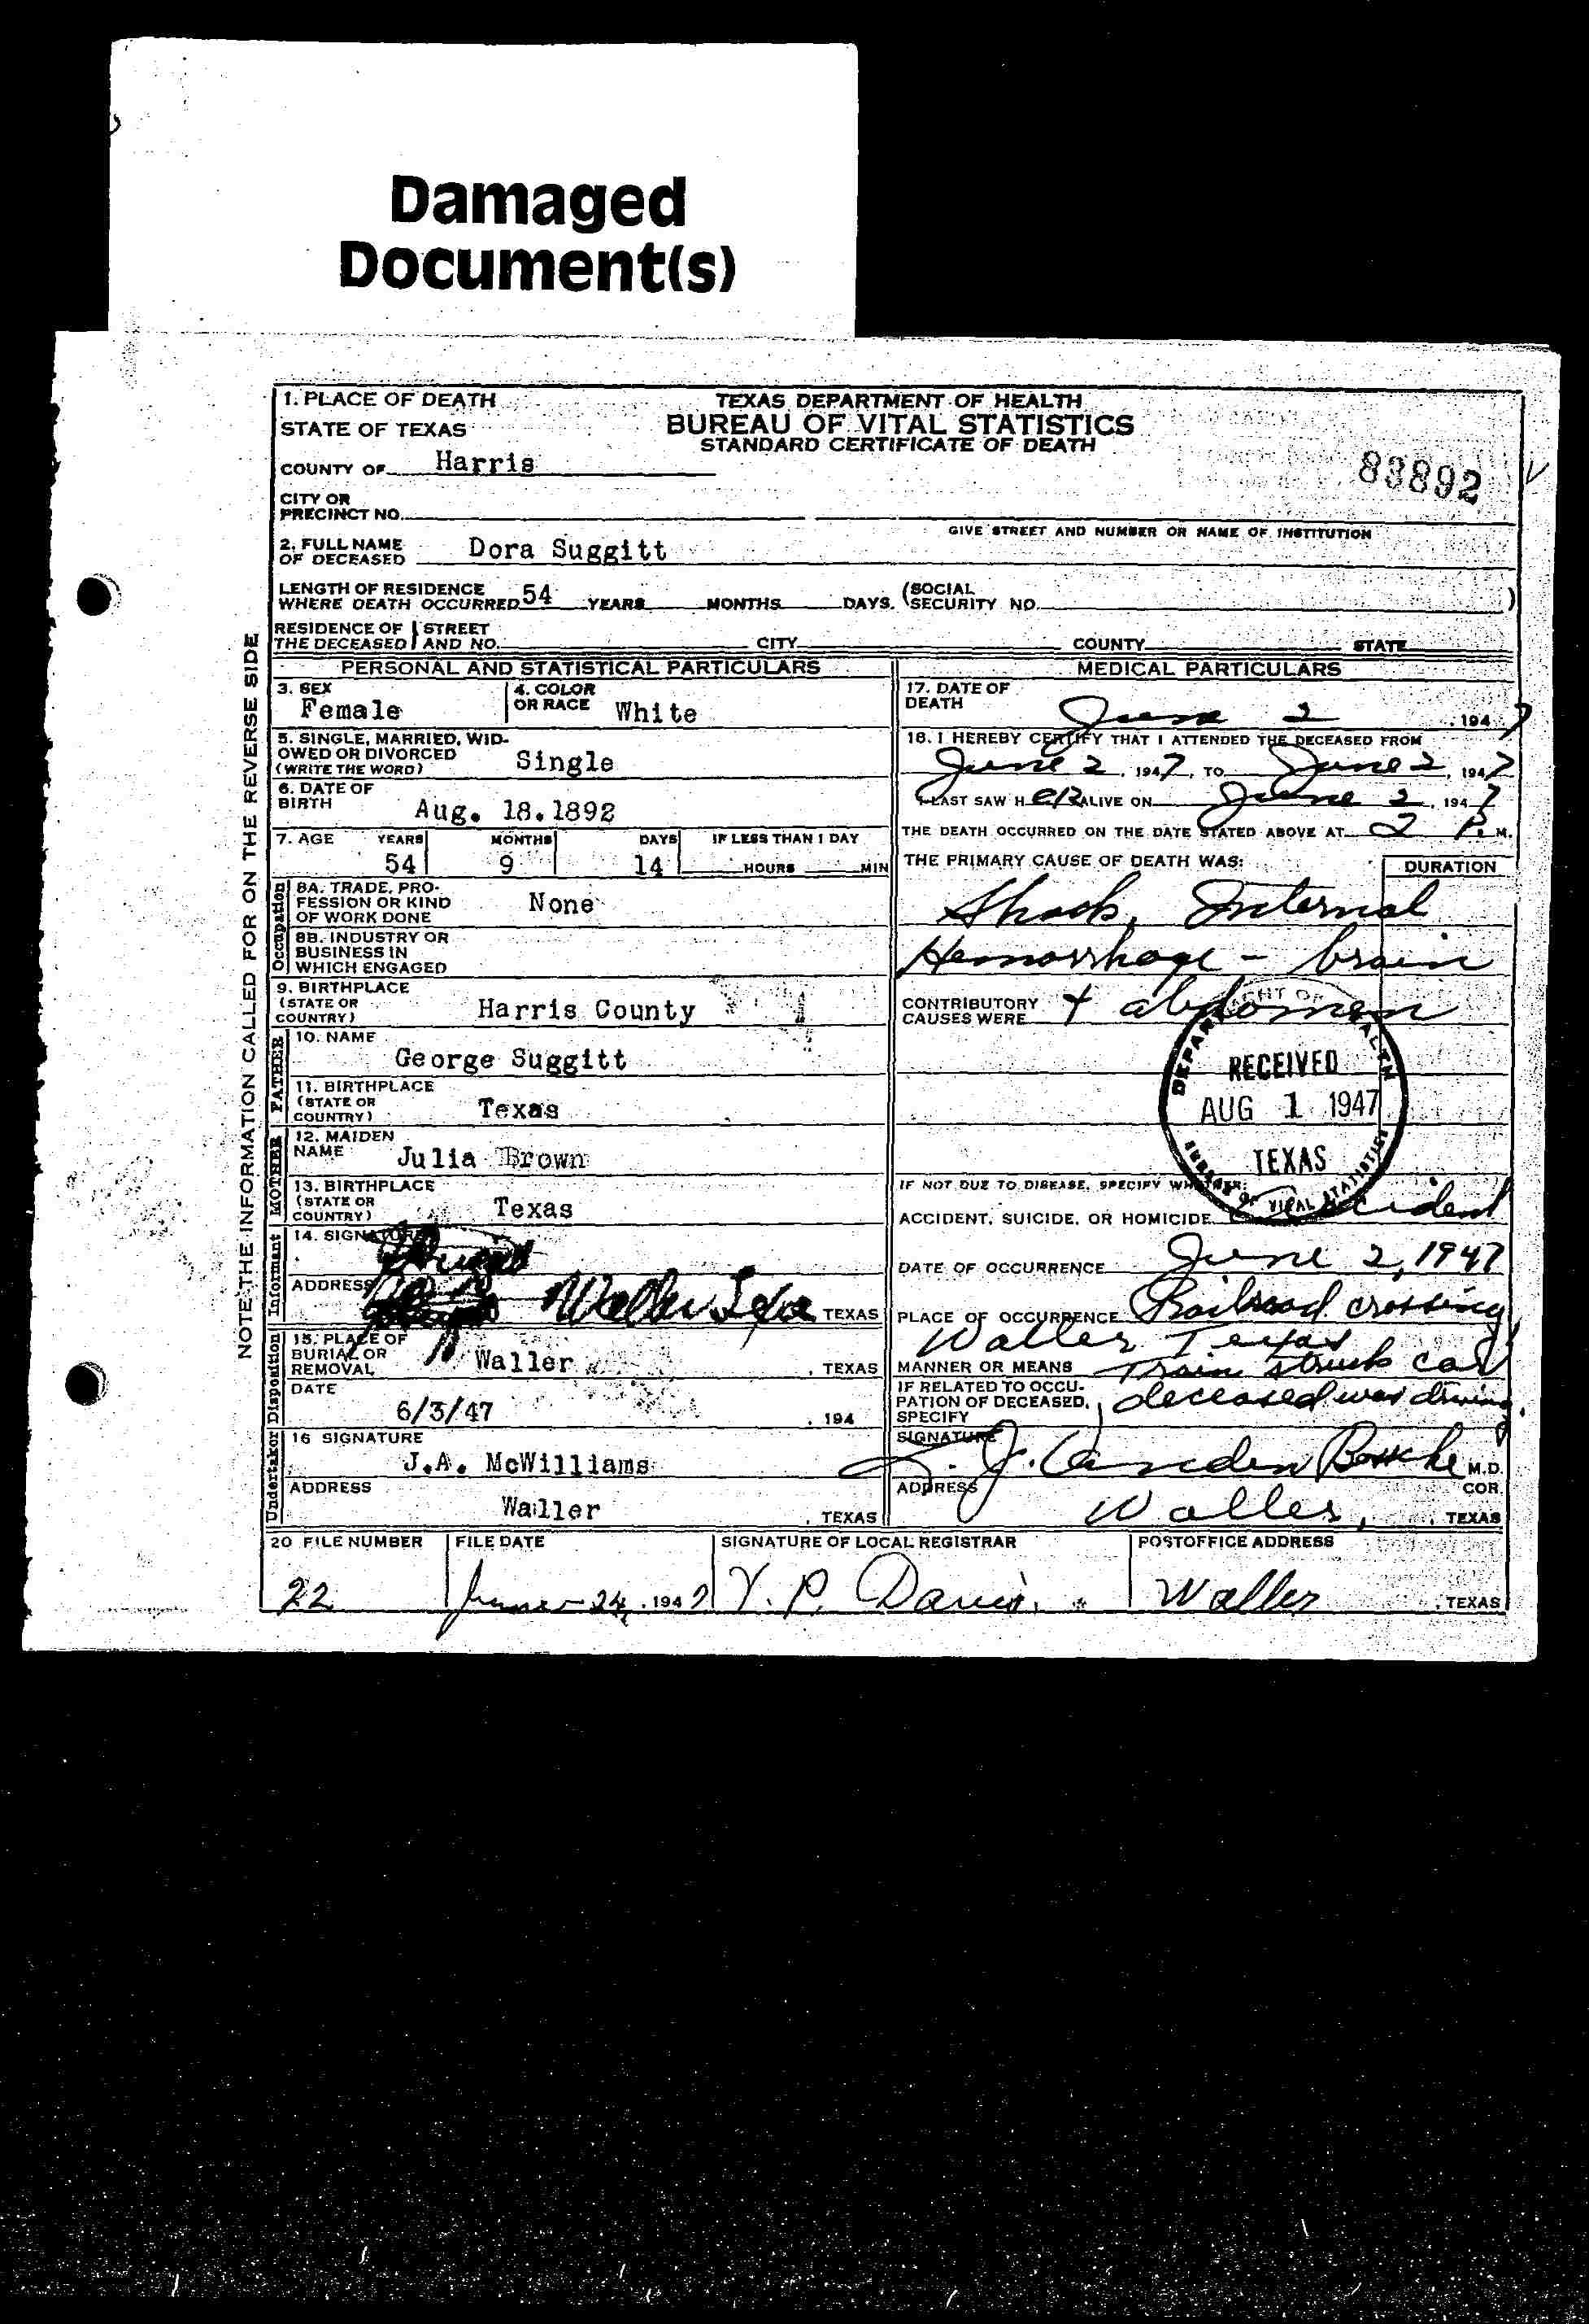 Damaged
Document(s)
1. PLACE OF DEATH
STATE OF TEXAS
COUNTY OF Harris
CITY OR
PRECINCT NO.
TEXAS DEPARTMENT OF HEALTH
BUREAU OF VITAL STATISTICS
STANDARD CERTIFICATE OF DEATH
83892
GIVE STREET AND NUMBER OR NAME OF INSTITUTION
2. FULL NAME
OF DECEASED Dora Suggitt
LENGTH OF RESIDENCE
WHERE DEATH OCCURRED 54 YEARS MONTHS DAYS. (SOCIAL
SECURITY NO. )
RESIDENCE OF STREET
THE DECEASED AND NO. CITY COUNTY STATE
NOTE THE INFORMATION CALLED FOR ON THE REVERSE SIDE
PERSONAL AND STATISTICAL PARTICULARS
3. SEX
Female
4. COLOR
OR RACE White
5. SINGLE, MARRIED, WID-
OWED OR DIVORCED
(WRITE THE WORD) Single
6. DATE OF
BIRTH Aug. 18.1892
7. AGE YEARS MONTHS DAYS IF LESS THAN 1 DAY
54 9 14 HOURS MIN
Occupation
8A. TRADE, PRO-
FESSION OR KIND
OF WORK DONE None
8B. INDUSTRY OR
BUSINESS IN
WHICH ENGAGED
9. BIRTHPLACE
(STATE OR
COUNTRY) Harris County
FATHER
10. NAME
George Suggitt
11. BIRTHPLACE
(STATE OR
COUNTRY) Texas
MOTHER
12. MAIDEN
NAME Julia Brown
13. BIRTHPLACE
(STATE OR
COUNTRY) Texas
Informant
14. SIGNATURE
ADDRESS Waller TEXAS
Disposition
15. PLACE OF
BURIAL OR
REMOVAL Waller , TEXAS
DATE
6/3/47 , 194
Undertaker
16 SIGNATURE
J.A. McWilliams
ADDRESS
Waller , TEXAS
MEDICAL PARTICULARS
17. DATE OF
DEATH June 2 , 1947
18. I HEREBY CERTIFY THAT I ATTENDED THE DECEASED FROM
June 2, 1947, TO June 2, 1947
I LAST SAW HER ALIVE ON June 2, 1947
THE DEATH OCCURRED ON THE DATE STATED ABOVE AT 2 P. M.
THE PRIMARY CAUSE OF DEATH WAS: DURATION
Shock, Internal
Hemorrhage - brain
CONTRIBUTORY
CAUSES WERE + abdomen
DEPARTMENT OF HEALTH
RECEIVED
AUG 1 1947
TEXAS
BUREAU OF VITAL STATISTICS
IF NOT DUE TO DISEASE, SPECIFY WHETHER:
ACCIDENT, SUICIDE, OR HOMICIDE accident
DATE OF OCCURRENCE June 2, 1947
PLACE OF OCCURRENCE Railroad crossing,
Waller Texas
MANNER OR MEANS Train struck car
IF RELATED TO OCCU-
PATION OF DECEASED,
SPECIFY deceased was driving.
SIGNATURE
M.D.
COR.
ADDRESS Waller, TEXAS
20 FILE NUMBER FILE DATE SIGNATURE OF LOCAL REGISTRAR POSTOFFICE ADDRESS
22 June 24, 1947 V. P. Davis. Waller , TEXAS